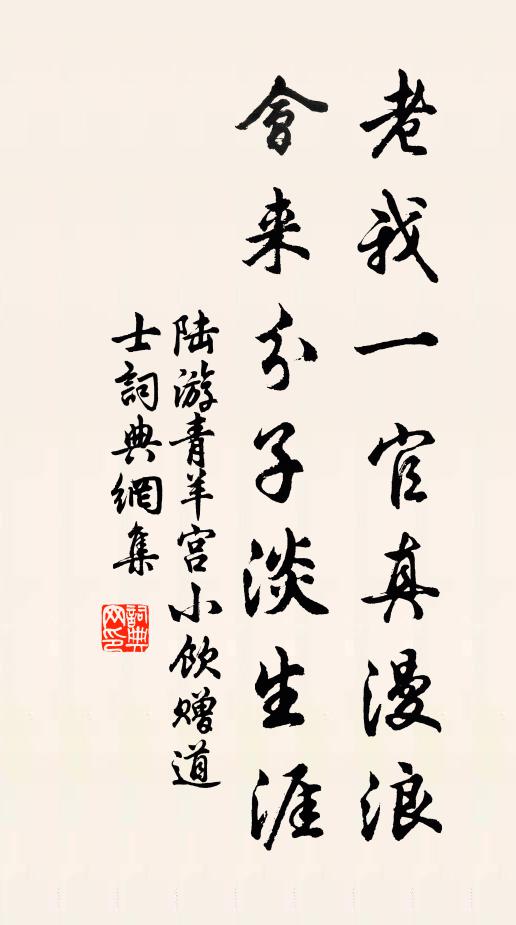 老我一官真漫浪
會来分子淡生涯
陆游青羊宫小飲赠道
士詞典網集
詞典
网印